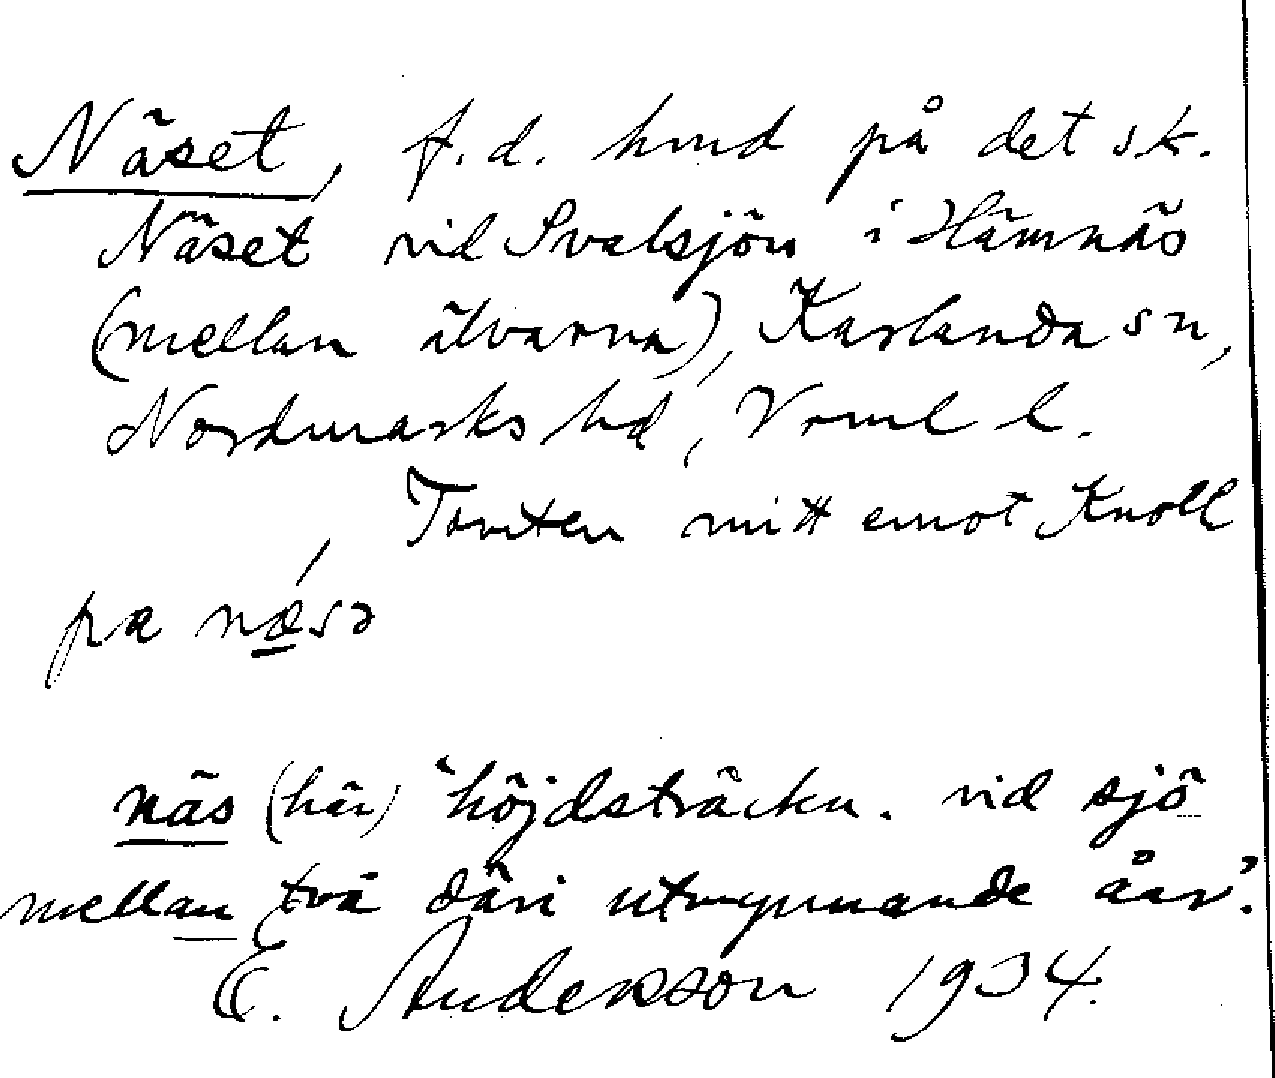 Näset, f.d. hmd på det sk.
Näset vid Svalsjön i Hämnäs
(mellan älvarna), Karlanda sn,
Nordmarks hd, Vrml l.
Torvten mitt emot Knoll
pa næsə
näs (här) 'höjdsträcka. vid sjö
mellan två däri utmynnande åar'.
E. Anderson 1934.